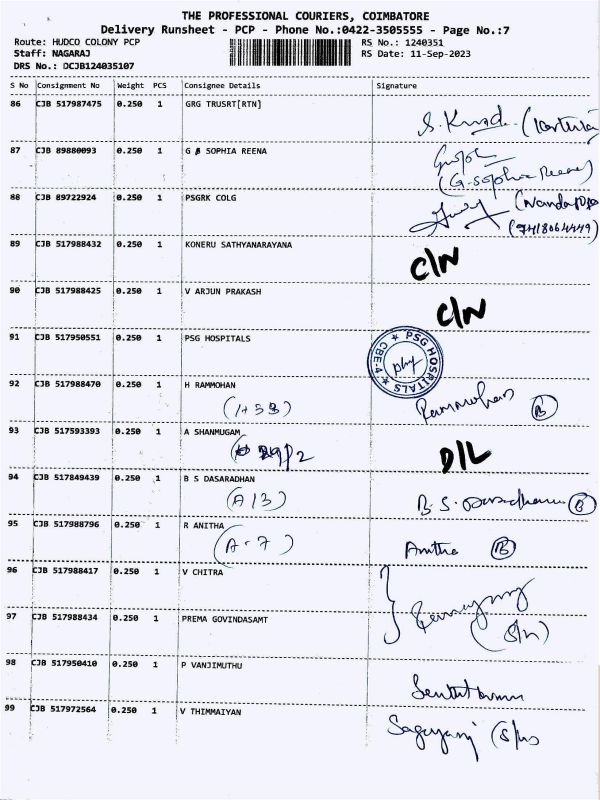 THE PROFESSIONAL COURIERS, COIMBATORE
Delivery Runsheet - PCP - Phone No.:0422-3505555 - Page No.:7
Route: HUDCO COLONY PCP RS No.: 1240351
Staff: NAGARAJ RS Date: 11-Sep-2023
DRS No.: DCJB124035107
S No Consignment No Weight PCS Consignee Details Signature
86 CJB 517987475 0.250 1 GRG TRUSRT[RTN]
87 CJB 89880093 0.250 1 G SOPHIA REENA
(G. Sophia Reena)
88 CJB 89722924 0.250 1 PSGRK COLG
(7418064449)
89 CJB 517988432 0.250 1 KONERU SATHYANARAYANA C/N
90 CJB 517988425 0.250 1 V ARJUN PRAKASH C/N
91 CJB 517950551 0.250 1 PSG HOSPITALS PSG HOSPITALS CBE-4
92 CJB 517988470 0.250 1 H RAMMOHAN Rammohan B
93 CJB 517593393 0.250 1 A SHANMUGAM D/L
94 CJB 517849439 0.250 1 B S DASARADHAN
(A 13) B. S. Dasaradhan B
95 CJB 517988796 0.250 1 R ANITHA
(A-7) Anitha B
96 CJB 517988417 0.250 1 V CHITRA
97 CJB 517988434 0.250 1 PREMA GOVINDASAMT
98 CJB 517950410 0.250 1 P VANJIMUTHU
99 CJB 517972564 0.250 1 V THIMMAIYAN